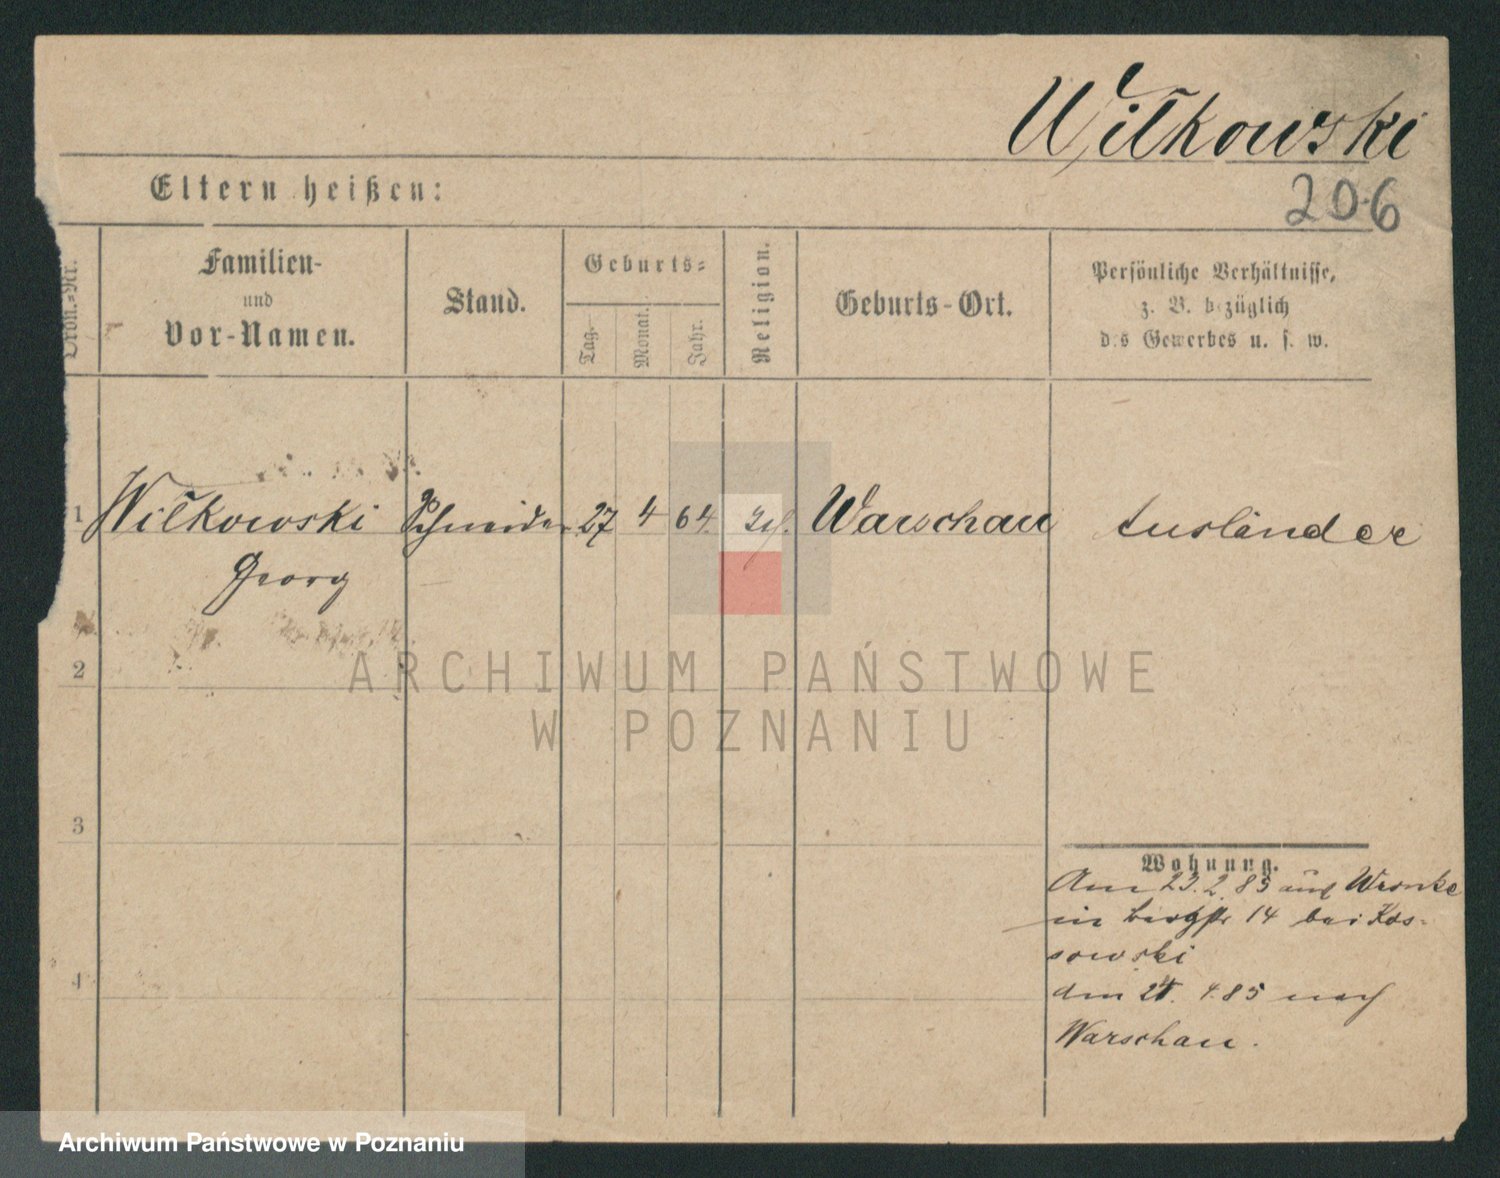 Wilkowski
206
Eltern heißen:
Ordn.-Nr.
Familien-
und
Vor-Namen.
Stand.
Geburts-
Tag.
Monat.
Jahr.
Religion.
Geburts-Ort.
Persönliche Verhältnisse,
z. B. bezüglich
des Gewerbes u. s. w.
1 Wilkowski Schneider 27 4 64. Warschau Ausländer
Georg
2
ARCHIWUM PAŃSTWOWE
W POZNANIU
3
Wohnung.
Am 23. 2. 85 aus Wronke
in Bergstr 14 bei Kos-
sowski
4
den 4.85 nach
Warschau.
Archiwum Państwowe w Poznaniu